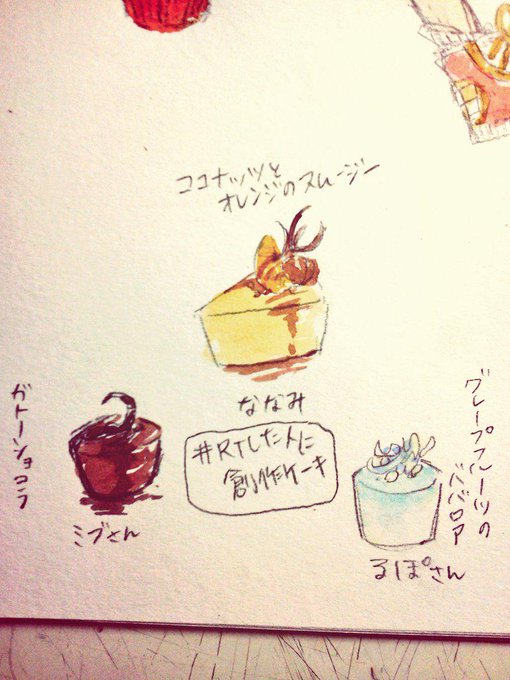 ココナッツと
オレンジのスムージー
ななみ
#RTした人に
創作ケーキ
ガトーショコラ
ミブさん
グレープフルーツの
ババロア
るぽさん